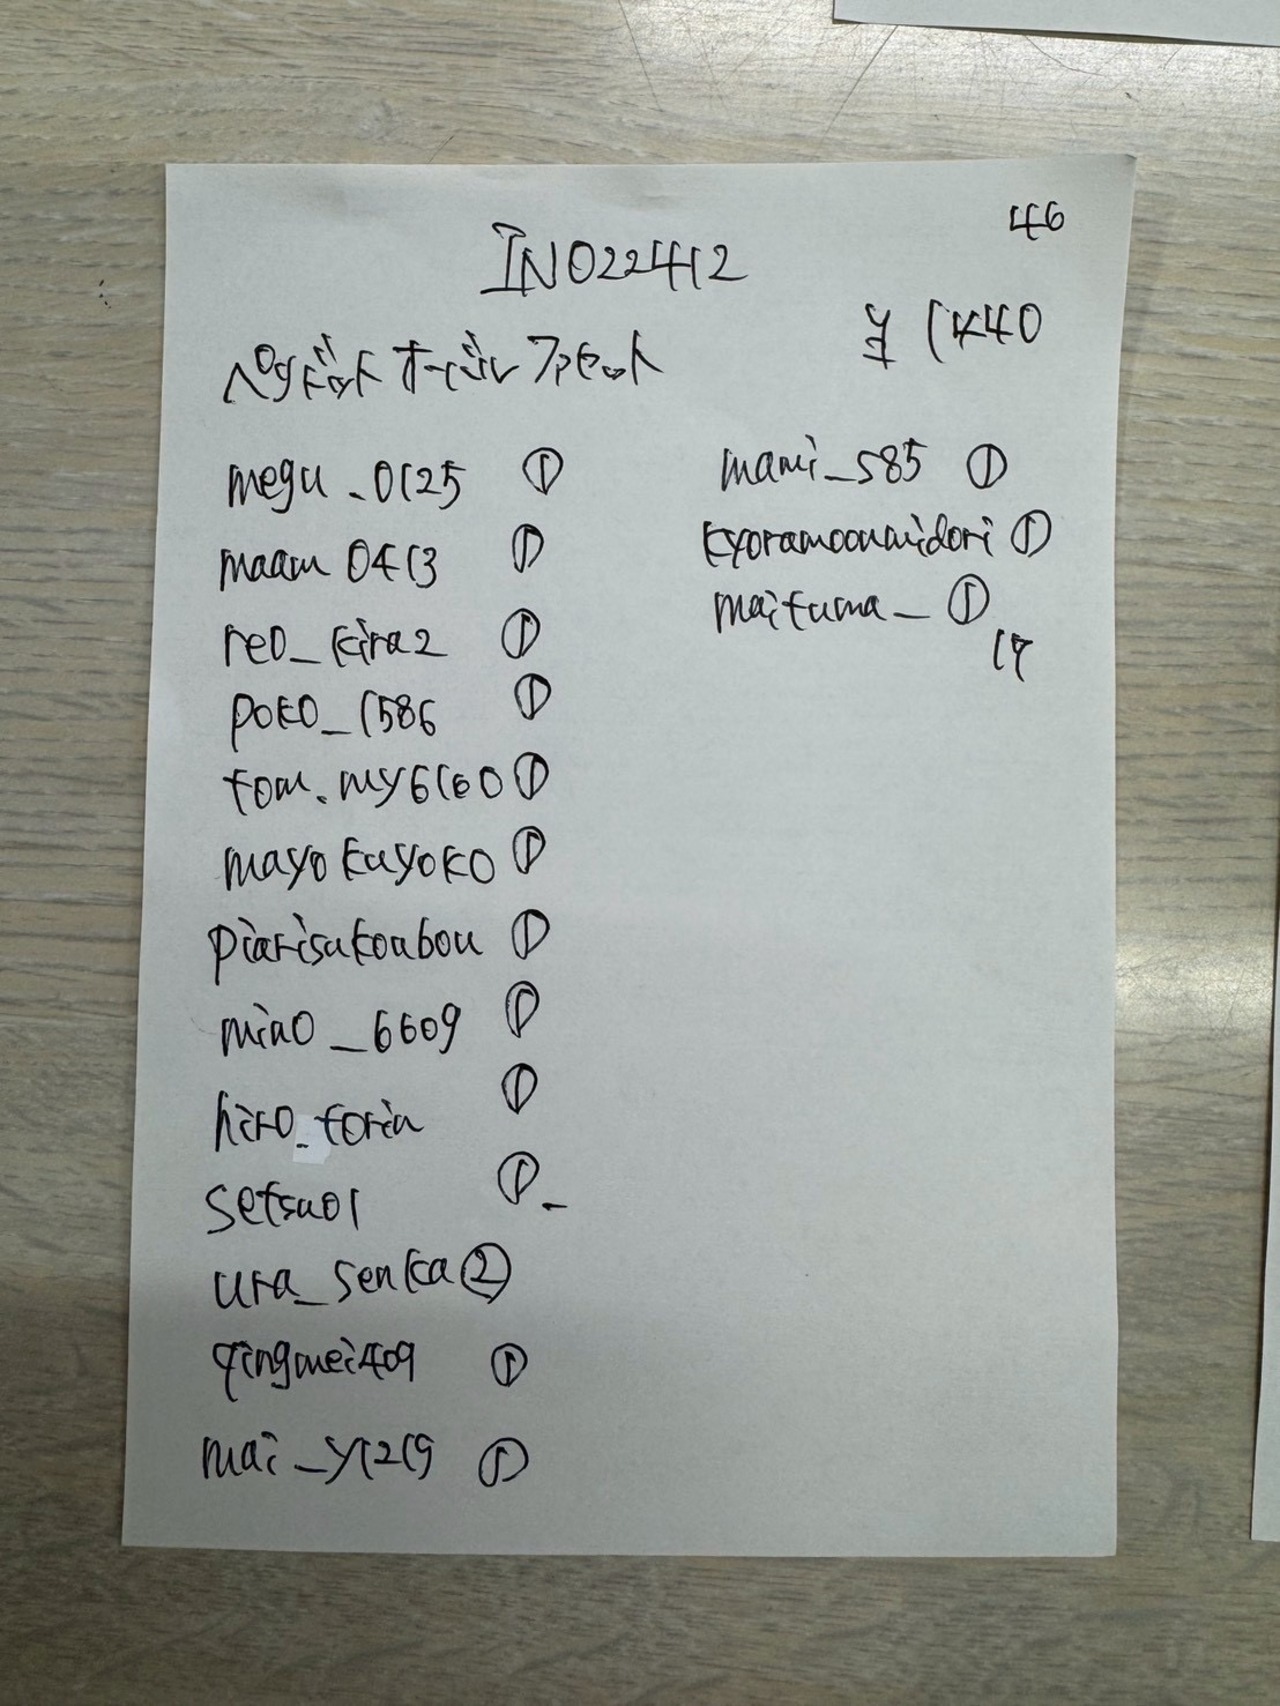 46
IN022412
ペリドット オーバル ファセット
megu_0125 ①
maam0413 ①
reo_kira2 ①
poko_1586 ①
tom.my6160 ①
mayokayoko ①
piarisukoubou ①
mino_6609 ①
hiro_torin ①
setsu01 ①
ura_senka ②
qingmei409 ①
mai_y1219 ①
mami_585 ①
kyoramoonmidori ①
maituma_ ①
17